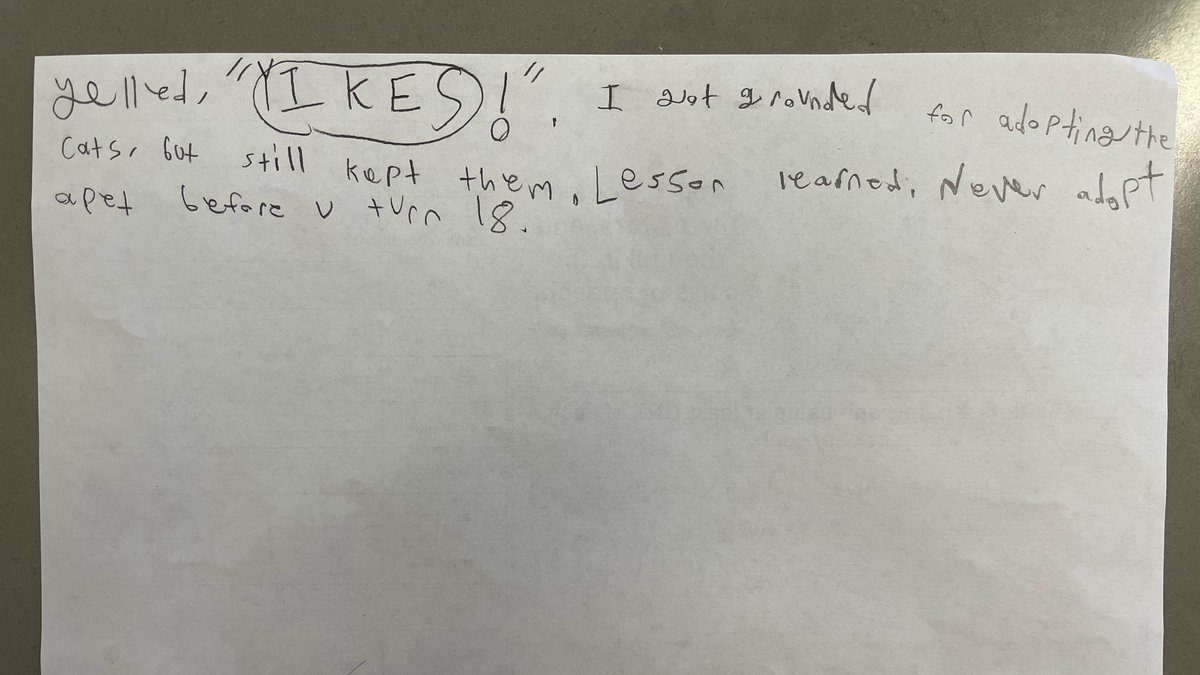 yelled, "YIKES!". I got grounded for adopting the
cats, but still kept them. Lesson learned, Never adopt
a pet before u turn 18.